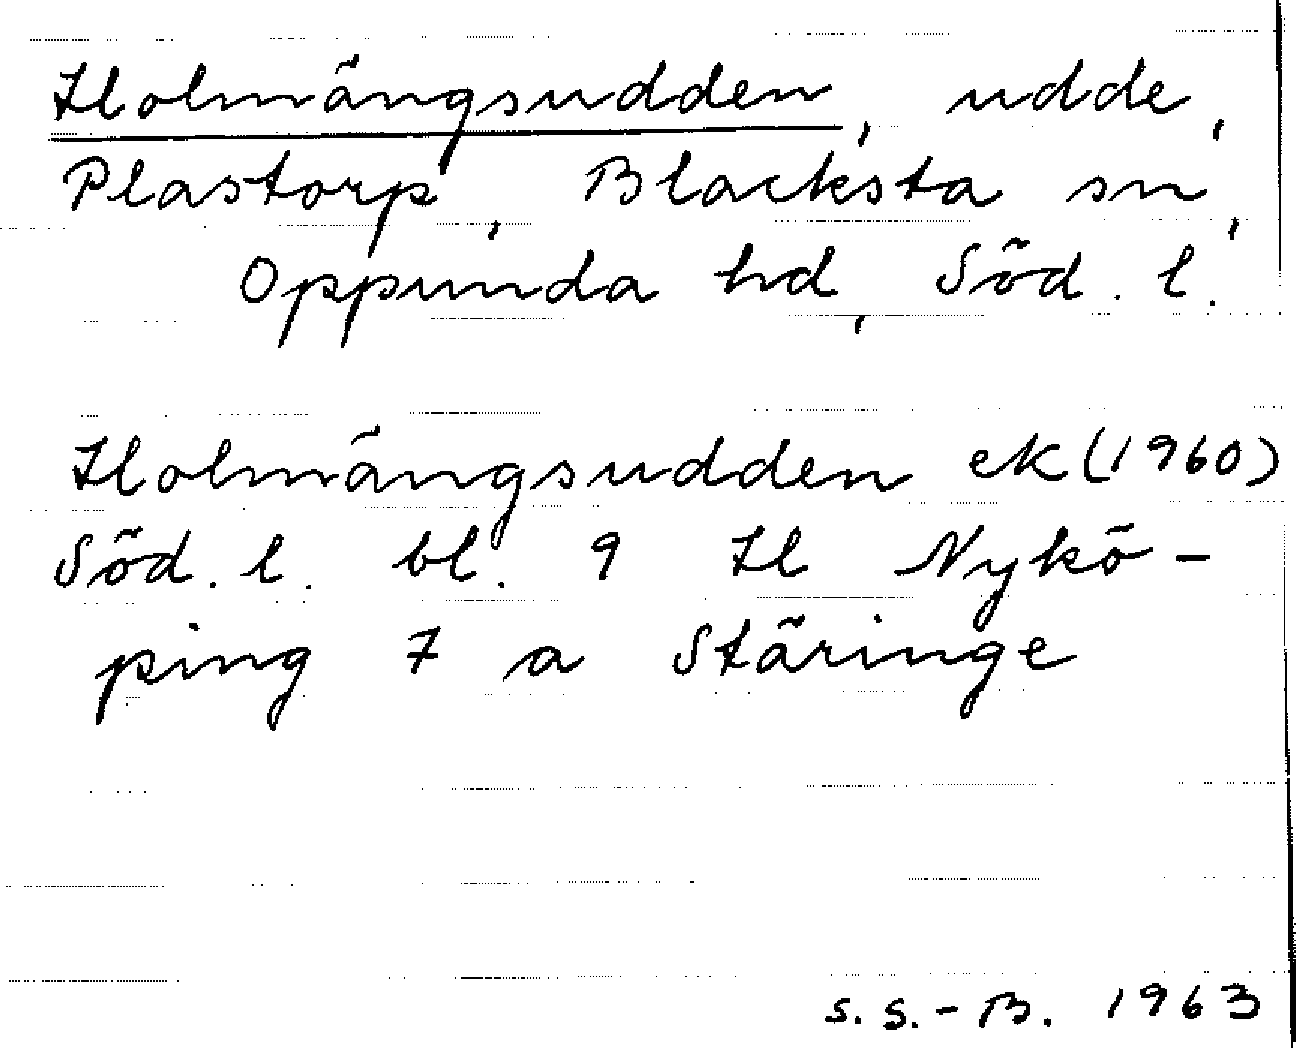 Holmängsudden, udde,
Plastorp, Blacksta sn,
Oppunda hd, Söd. l.
Holmängsudden ek (1960)
Söd. l. bl. 9 H Nykö-
ping 7 a Stäringe
S. S.-B. 1963